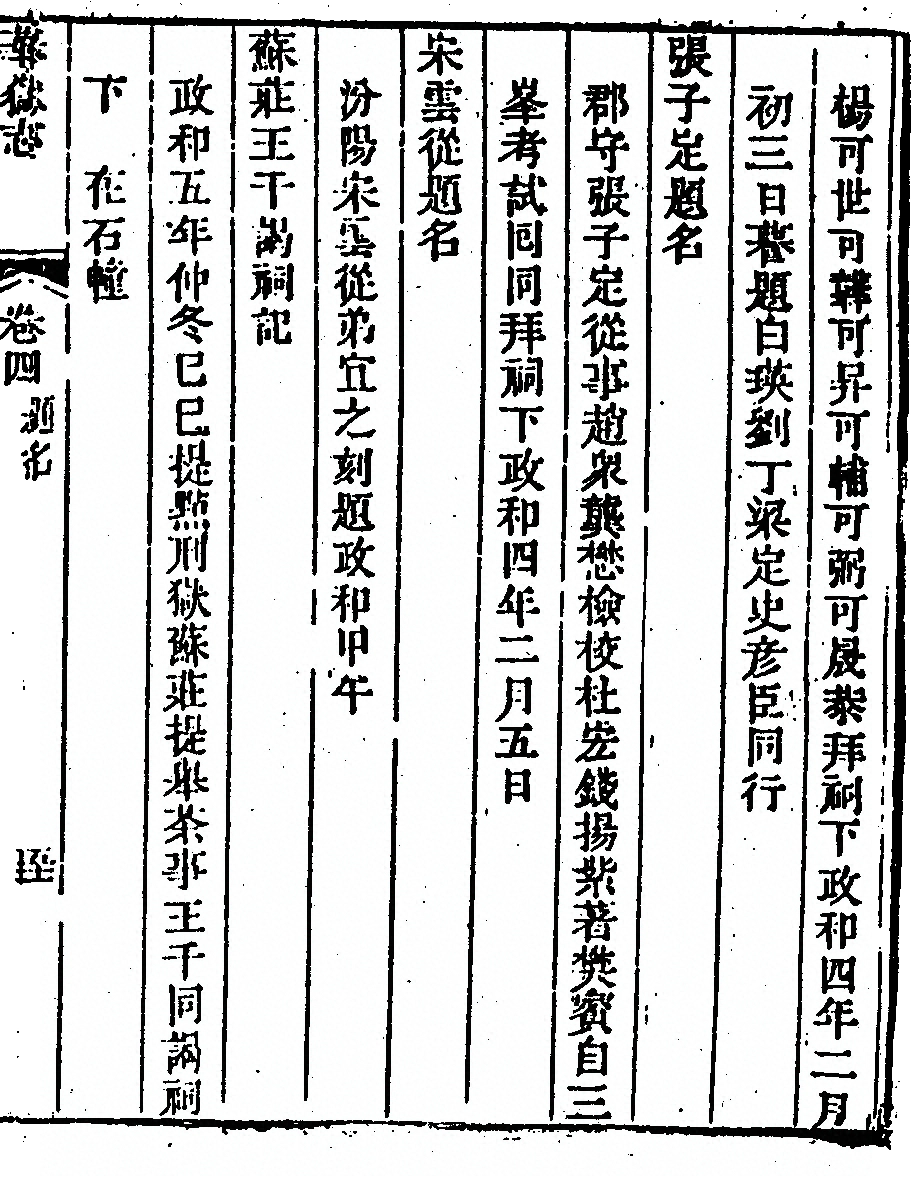 楊可世可韡可昇可輔可弼可晟恭拜祠下政和四年二月
初三日暮題白瑛劉丁梁定史彥臣同行
張子定題名
郡守張子定從事趙衆龔懋檢校杜宏錢揚紫著樊賓自三
峯考試回同拜祠下政和四年二月五日
宋雲從題名
汾陽宋雲從弟宜之刻題政和甲午
蘇莊王千謁祠記
政和五年仲冬己巳提點刑獄蘇莊提舉茶事王千同謁祠
下 在石幢
華嶽志
卷四 題名